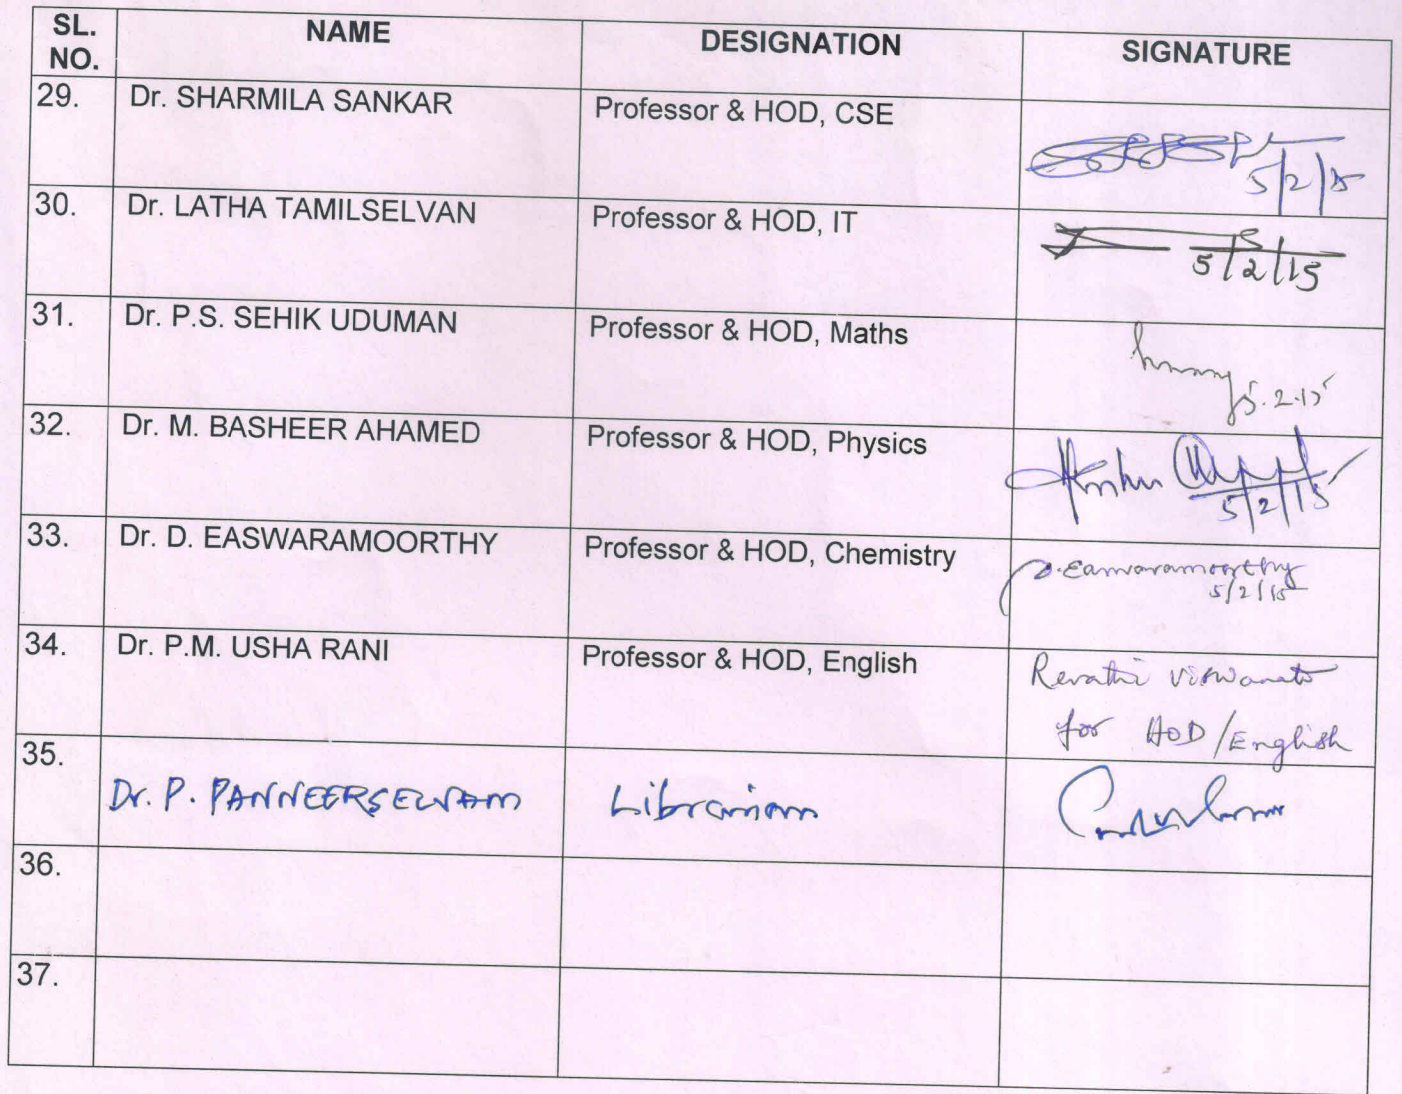 SL. NO. NAME DESIGNATION SIGNATURE
29. Dr. SHARMILA SANKAR Professor & HOD, CSE
5/2/15
30. Dr. LATHA TAMILSELVAN Professor & HOD, IT
5/2/15
31. Dr. P.S. SEHIK UDUMAN Professor & HOD, Maths
5.2.15
32. Dr. M. BASHEER AHAMED Professor & HOD, Physics
5/2/15
33. Dr. D. EASWARAMOORTHY Professor & HOD, Chemistry
D. Easwaramoorthy
5/2/15
34. Dr. P.M. USHA RANI Professor & HOD, English
Revathi Viswanath
for HOD/English
35.
Dr. P. PANNEERSELVAM Librarian
36.
37.